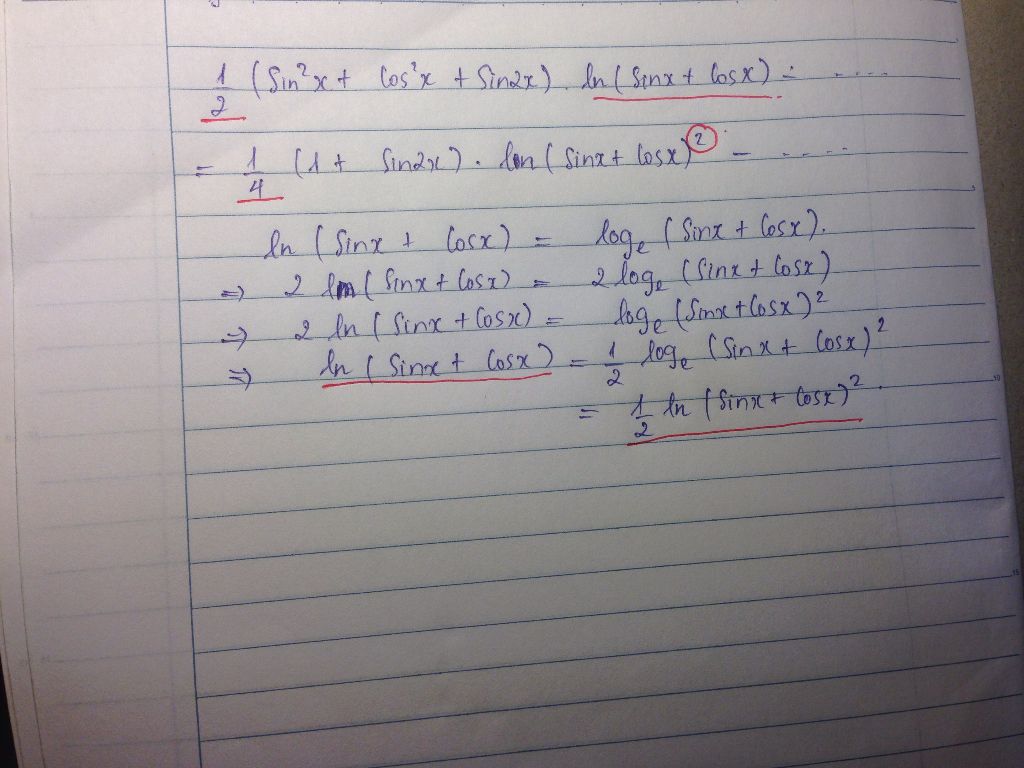 1/2 (Sin²x + Cos²x + Sin2x) . ln (Sinx + Cosx) - ....
= 1/4 (1 + Sin2x) . ln (Sinx + Cosx)² - ....
ln (Sinx + Cosx) = logₑ (Sinx + Cosx).
⇒ 2 ln (Sinx + Cosx) = 2 logₑ (Sinx + Cosx)
⇒ 2 ln (Sinx + Cosx) = logₑ (Sinx + Cosx)²
⇒ ln (Sinx + Cosx) = 1/2 logₑ (Sinx + Cosx)²
= 1/2 ln (Sinx + Cosx)².